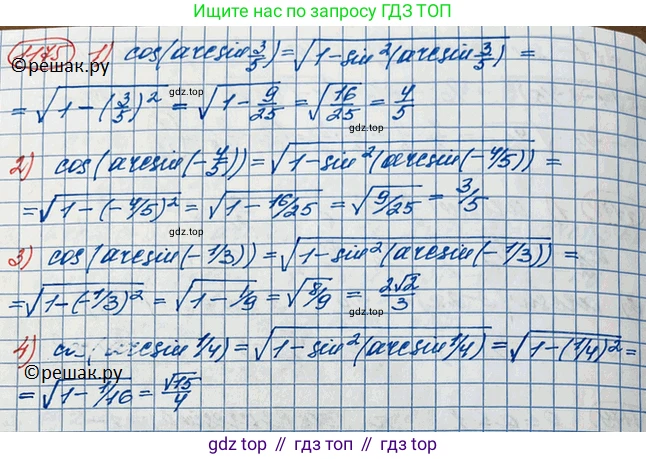 Ищите нас по запросу ГДЗ ТОП
1175 1) cos(arcsin 3/5) = √(1-sin²(arcsin 3/5)) =
©решак.ру
= √(1-(3/5)²) = √(1-9/25) = √(16/25) = 4/5
gdz top
2) cos(arcsin(-4/5)) = √(1-sin²(arcsin(-4/5))) =
= √(1-(-4/5)²) = √(1-16/25) = √(9/25) = 3/5
gdz top
3) cos(arcsin(-1/3)) = √(1-sin²(arcsin(-1/3))) =
= √(1-(-1/3)²) = √(1-1/9) = √(8/9) = 2√2/3
gdz top
4) (arcsin 1/4) = √(1-sin²(arcsin 1/4)) = √(1-(1/4)²) =
©решак.ру
= √(1-1/16) = √15/4
gdz top // гдз топ // gdz top // гдз топ